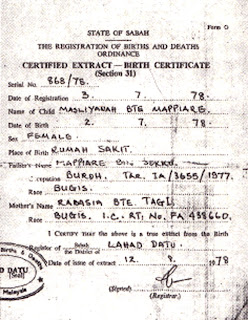 Form G
STATE OF SABAH
THE REGISTRATION OF BIRTHS AND DEATHS
ORDINANCE
CERTIFIED EXTRACT—BIRTH CERTIFICATE
(Section 31)
Serial No. 868/78.
Date of Registration 3. 7. 78.
Name of Child MASLIYANAH BTE MAPPIARE.
Date of Birth 2. 7. 78.
Sex FEMALE.
Place of Birth RUMAH SAKIT.
Father's Name MAPPIARE BIN SEKKO.
Occupation BUROH. TAR. IA/3655/1977.
Race BUGIS.
Mother's Name RABASIA BTE. TAGL.
Race BUGIS. I.C. RT; No. FA 438660.
I CERTIFY that the above is a true extract from the Birth
Register of Sabah LAHAD DATU.
the District of
Date of issue of extract 12. 8. 1978
(Signed)
(Registrar.)
Births & Deaths
DATU
(Seal)
Malaysia